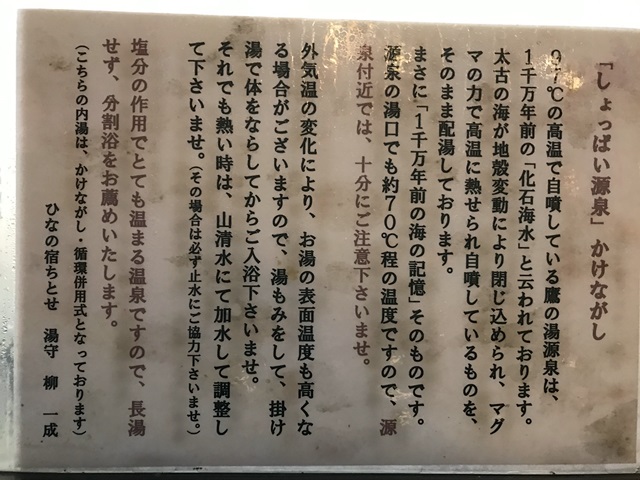 「しょっぱい源泉」かけながし
97℃の高温で自噴している鷹の湯源泉は、
1千万年前の「化石海水」と云われております。
太古の海が地殻変動により閉じ込められ、マグ
マの力で高温に熱せられ自噴しているものを、
そのまま配湯しております。
まさに「1千万年前の海の記憶」そのものです。
源泉の湯口でも約70℃程の温度ですので、源
泉付近では、十分にご注意下さいませ。
外気温の変化により、お湯の表面温度も高くな
る場合がございますので、湯もみをして、掛け
湯で体をならしてからご入浴下さいませ。
それでも熱い時は、山清水にて加水して調整し
て下さいませ。（その場合は必ず止水にご協力下さいませ。）
塩分の作用でとても温まる温泉ですので、長湯
せず、分割浴をお薦めいたします。
（こちらの内湯は、かけながし・循環併用式となっております）
ひなの宿ちとせ 湯守 柳 一成